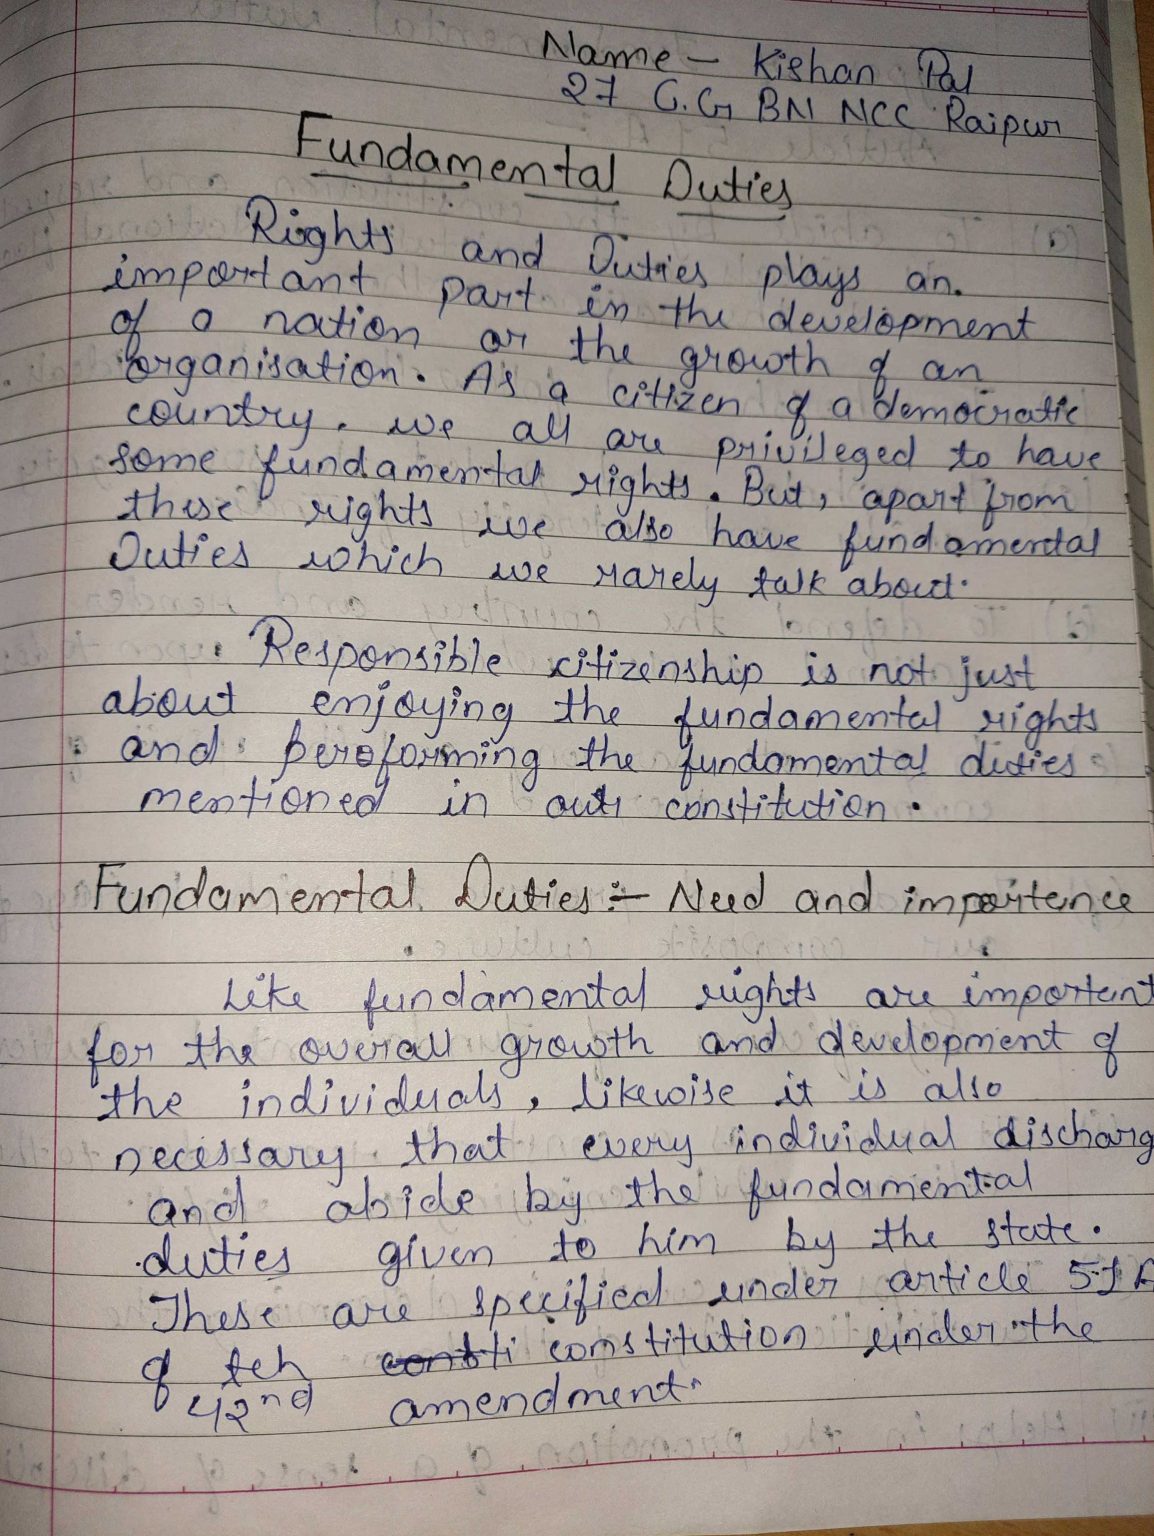 Name - Kishan Pal
27 C.G BN NCC Raipur
Fundamental Duties
Rights and Duties plays an.
important part in the development
of a nation or the growth of an
organisation. As a citizen of a democratic
country. we all are privileged to have
some fundamental rights. But, apart from
these rights we also have fundamental
Duties which we rarely talk about.
Responsible citizenship is not just
about enjoying the fundamental rights
and peroforming the fundamental duties
mentioned in our constitution.
Fundamental Duties :- Need and importence
Like fundamental rights are important
for the overall growth and development of
the individuals, likewise it is also
necessary that every individual discharg
and abide by the fundamental
duties given to him by the state.
These are specified under article 51A
of teh constitution under the
42nd amendment.